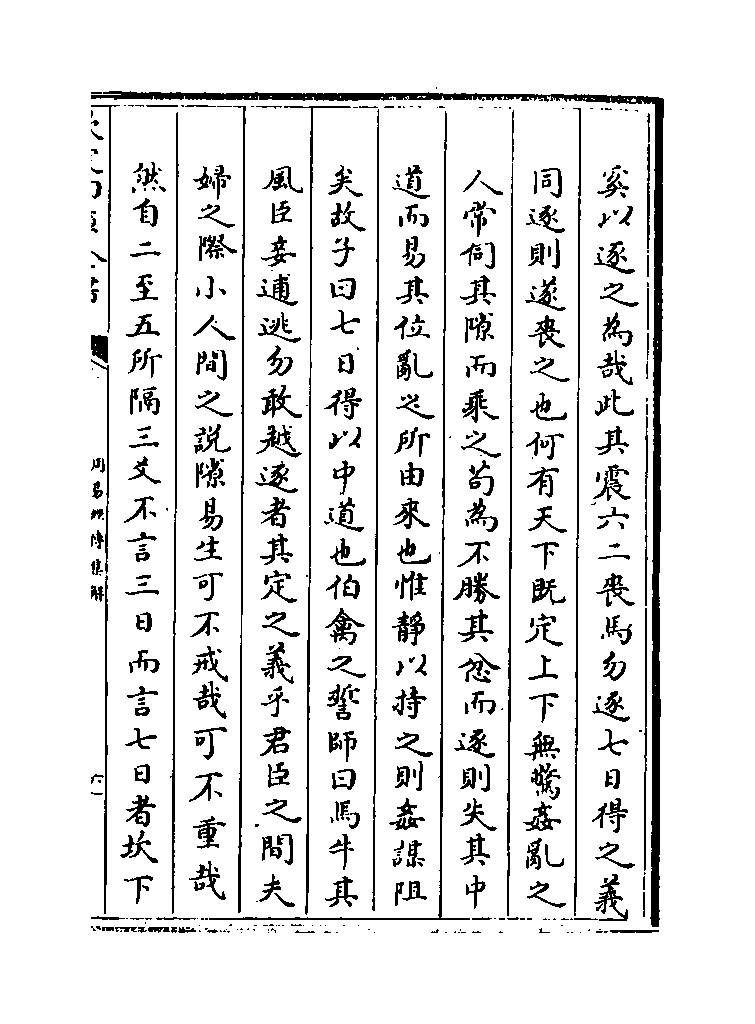 奚以逐之為哉此其震六二喪馬勿逐七日得之義
同逐則遂喪之也何有天下既定上下無驚姦亂之
人常伺其隙而乘之茍為不勝其忿而逐則失其中
道而易其位亂之所由來也惟靜以持之則姦謀阻
矣故子曰七日得以中道也伯禽之誓師曰馬牛其
風臣妾逋逃勿敢越逐者其定之義乎君臣之間夫
婦之際小人間之説隙易生可不戒哉可不重哉
然自二至五所隔三爻不言三日而言七日者坎下
周易經傳集解